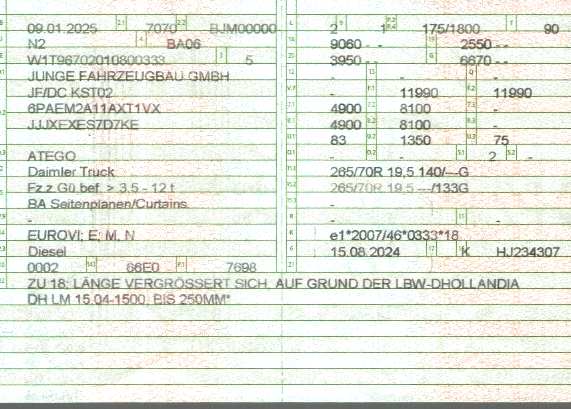 09.01.2025 2.1 7070 2.2 BJM00000
N2 4 BA06
W1T96702010800333 3 5
JUNGE FAHRZEUGBAU GMBH
JF/DC KST02
6PAEM2A11AXT1VX
JJJXEXES7D7KE
ATEGO
Daimler Truck
Fz.z.Gü.bef. > 3,5 - 12 t
BA Seitenplanen/Curtains.
-
EUROVI; E; M, N
Diesel
0002 14.1 66E0 P.1 7698
L 2 9 1 P.2 P.4 175/1800 T 90
9060 - - 2550 - -
3950 - - 6670 - -
- 13 - Q -
V.7 - F.1 11990 F.2 11990
7.1 4900 7.2 8100 -
8.1 4900 8.2 8100 -
U.1 83 U.2 1350 U.3 75
O.1 - O.2 - S.1 2 S.2 -
15.1 265/70R 19,5 140/---G
15.2 265/70R 19,5 ---/133G
-
R - 11 -
K e1*2007/46*0333*18
6 15.08.2024 17 K HJ234307
21
ZU 18: LÄNGE VERGRÖSSERT SICH, AUF GRUND DER LBW-DHOLLANDIA
DH LM 15.04-1500, BIS 250MM*